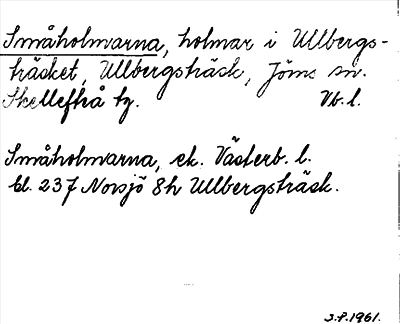 Småholmarna, holmar i Ullbergs-
träsket, Ullbergsträsk, Jörns sn.
Skellefteå tg. Vb. l.
Småholmarna, ek. Västerb. l.
bl. 237 Norsjö 8h Ullbergsträsk.
J.P. 1961.